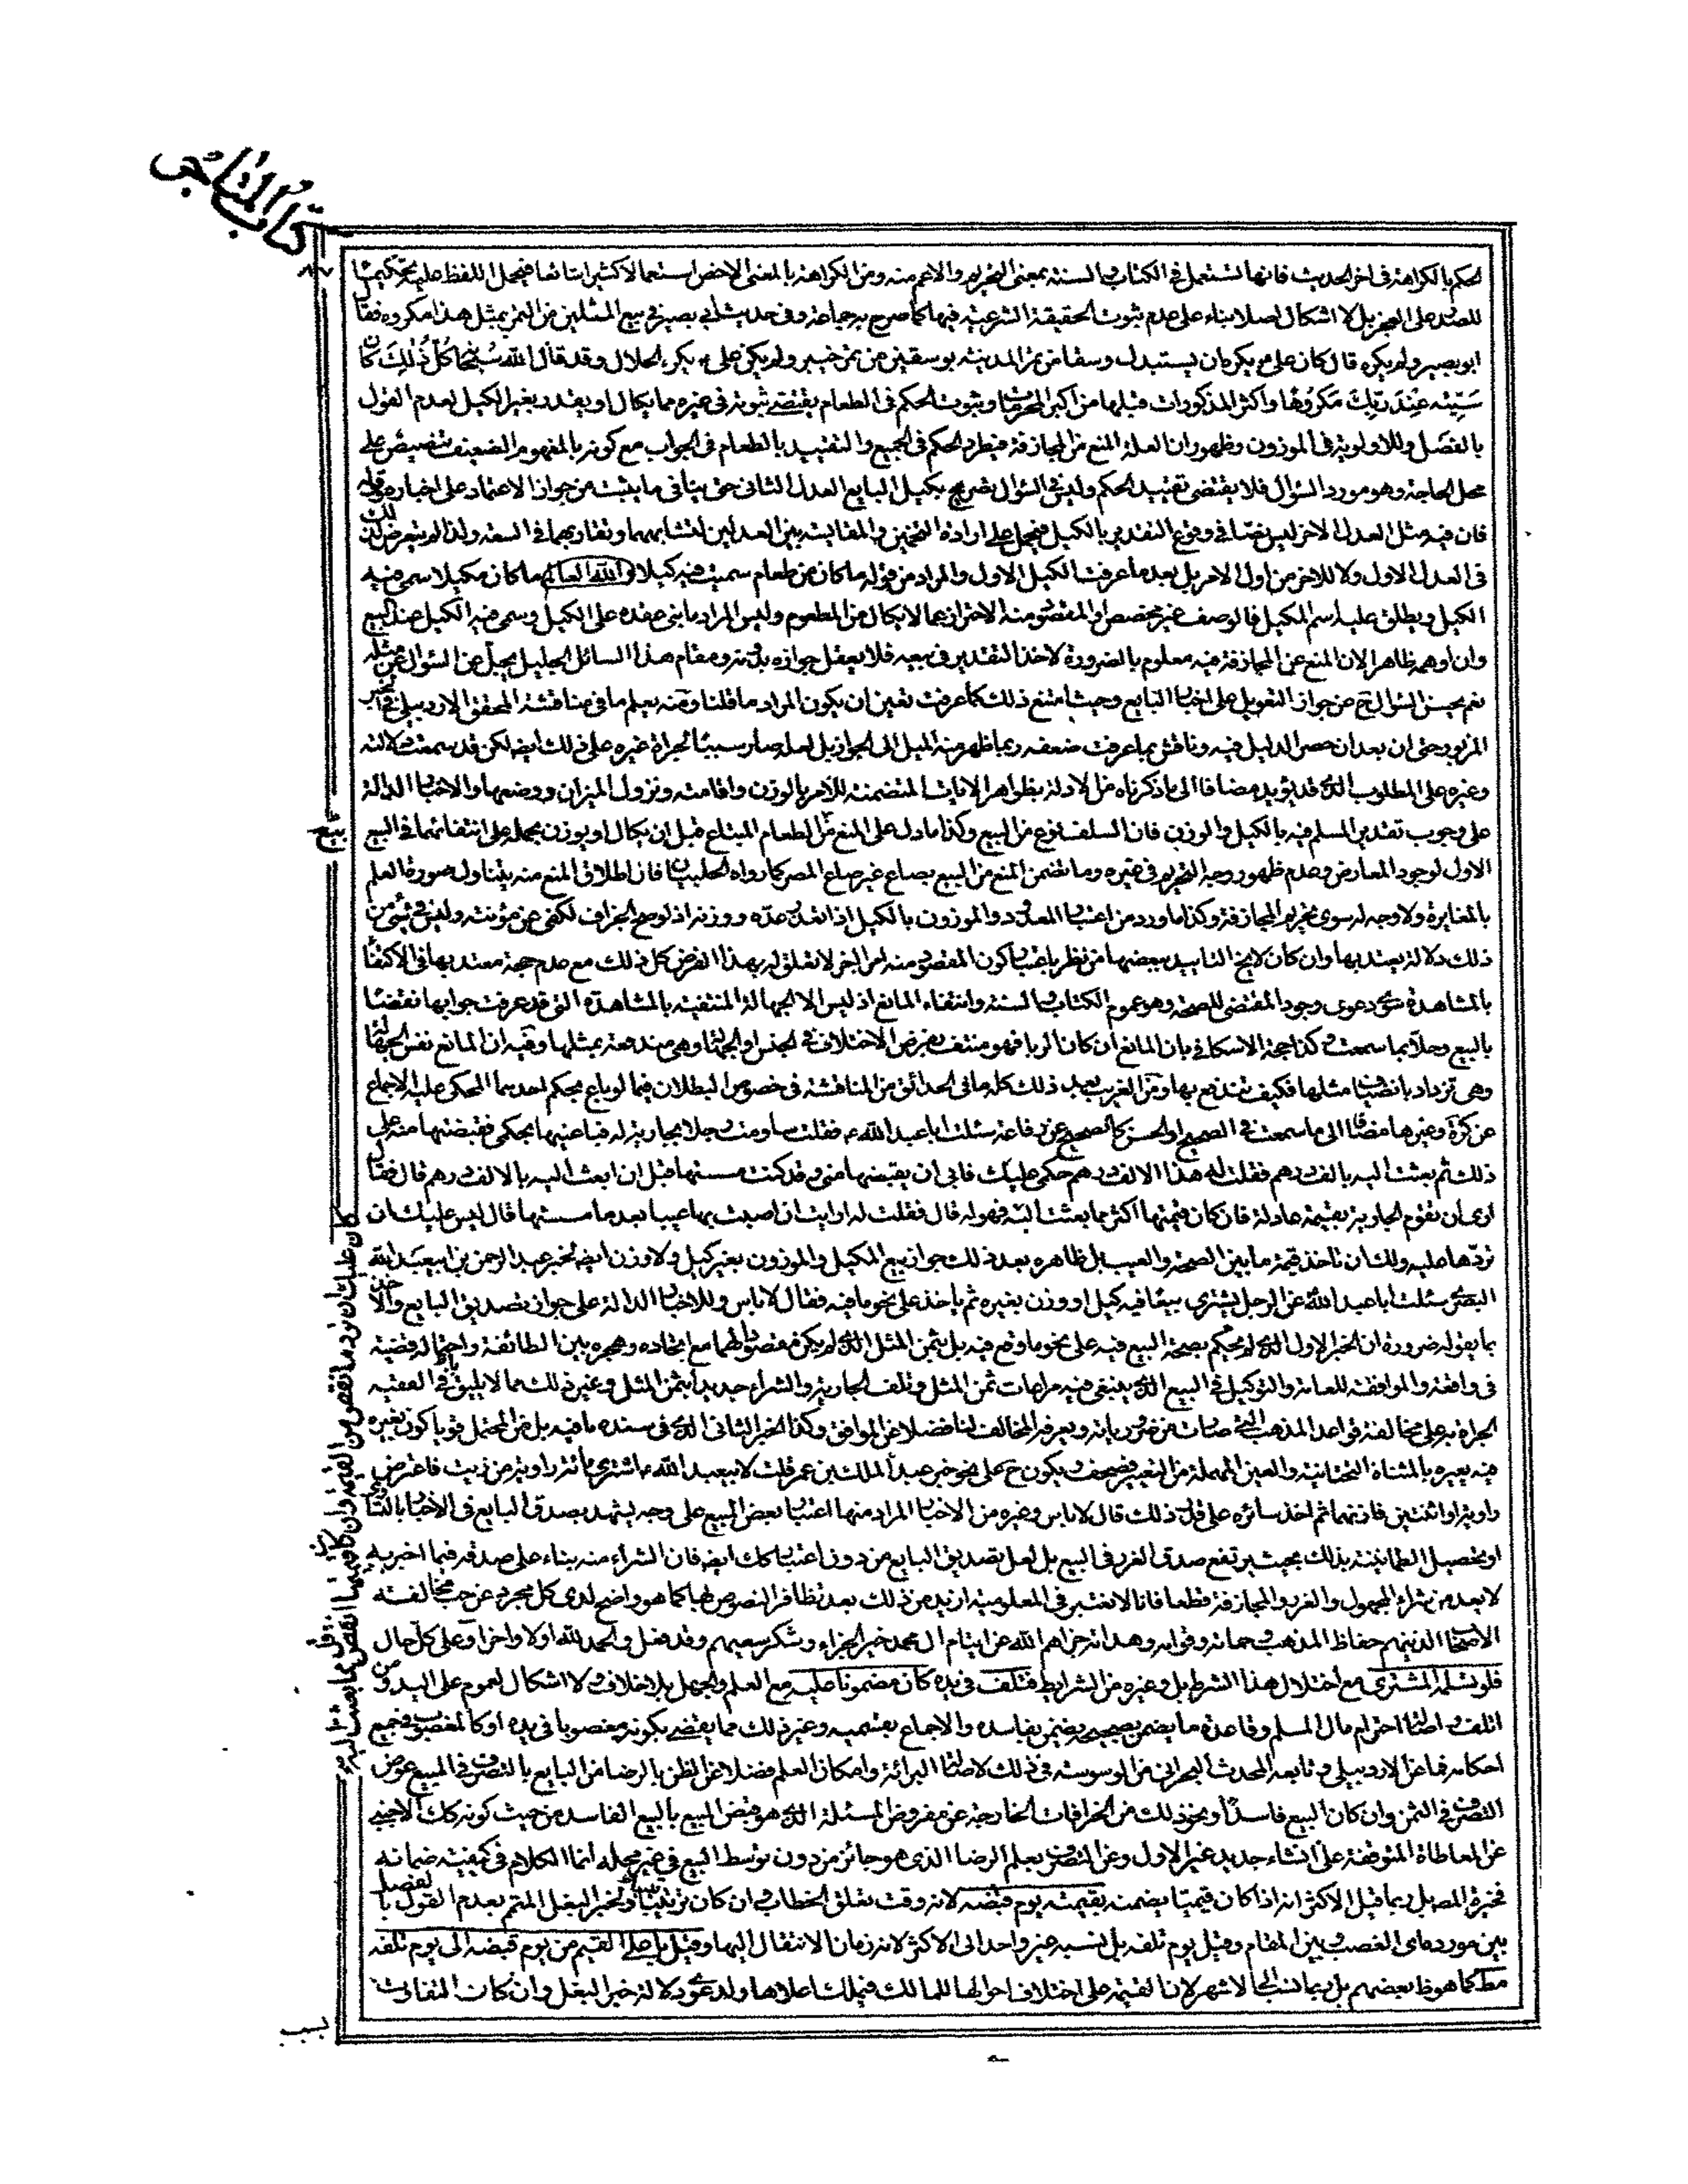 كتاب المتاجر
الحكم بالكراهة فى اخر الحديث فانها تستعمل فى الكتاب والسنة بمعنى التحريم والاعم منه ومن الكراهة بالمعنى الاخص استعمالا كثيرا شائعا فيحمل اللفظ عليه
للصدر على العجز بل لا اشكال اصلا بناء على عدم ثبوت الحقيقة الشرعية فيها كما صرح به جماعة وفى حديث ابى بصير فى بيع المثلين من التمر بمثل هذا مكروه فقال
ابو بصير ولم يكره قال كان على ع يكره ان يستبدل وسقا من تمر المدينة بوسقين من تمر خيبر ولم يكن على ع يكره الحلال وقد قال الله سبحانه كل ذلك كان
سيئه عند ربك مكروها واكثر المذكورات قبلها من اكبر المحرمات وثبوت الحكم فى الطعام يقتضى ثبوته فى غيره مما يكال او يقدر بغير الكيل لعدم القول
بالفصل وللاولوية فى الموزون وظهور ان العلة المنع من المجازفة فيطرد الحكم فى الجميع والتقييد بالطعام فى الجواب مع كونه بالمفهوم الضعيف تنصيص على
محل الحاجة وهو مورد السؤال فلا يقتضى تقييد الحكم وليس فى السؤال تصريح بكيل البايع العدل الثانى حتى ينافى ما يثبت من جواز الاعتماد على اخباره وقوله
فان فيه مثل العدل الاخر ليس نصا فى وقوع التقدير بالكيل فيحمل على ارادة التخمين والمقايسة بين العدلين لتشابههما وتقاربهما فى السعة ولذا لم يتعرض لذلك
فى العدل الاول ولا للاخر من اول الامر بل بعد ما عرفت الكيل الاول والمراد من قوله ما كان من طعام سميت فيه كيلا والله العالم ما كان مكيلا سمى فيه
الكيل ويطلق عليه اسم المكيل فالوصف غير مخصص او المقصود منه الاحتراز عما لا يكال من المطعوم وليس المراد ما بنى عقده على الكيل وسمى فيه الكيل عند البيع
وان اوهمه ظاهرا لان المنع عن المجازفة فيه معلوم بالضرورة لاخذ التقدير فى بيعه فلا يعقل جوازه بدونه ومقام هذا السائل الجليل يجل عن السؤال عن مثله
نعم يحسن السؤال ح عن جواز التعويل على اخبار البايع وحيث امتنع ذلك كما عرفت تعين ان يكون المراد ما قلنا ومنه يعلم ما فى مناقشة المحقق الاردبيلى فى الخبر
المزبور حتى ان بعد ان حصر الدليل فيه وناقش بما عرفت ضعفه ربما ظهر منه الميل الى الجواز بل لعله صار سببا لجرأة غيره على ذلك ايضا لكن قد سمعت دلالته
وغيره على المطلوب الذى قد يؤيد مضافا الى ما ذكرناه من الادلة بظواهر الايات المتضمنة للامر بالوزن واقامته ونزول الميزان ووضعها والاخبار الدالة
على وجوب تقدير المسلم فيه بالكيل والوزن فان السلف نوع من البيع وكذا ما دل على المنع من الطعام المبتاع قبل ان يكال او يوزن بحمله على انتفائهما فى البيع
الاول لوجود المعارض وعدم ظهور وجه التحريم فى غيره وما تضمن المنع من البيع بصاع غير صاع المصر كما رواه الحلبيان فان اطلاق المنع منه يتناول صورة العلم
بالمغايرة ولا وجه له سوى تحريم المجازفة وكذا ما ورد من اعتبار المعدود والموزون بالكيل اذا تعذر عده ووزنه اذ لو صح الجزاف لكفى عن مؤنته وليس فى شئ من
ذلك دلالة يعتد بها وان كان لا يخ التاييد ببعضها من نظر باعتبار كون المقصود منه امرا اخر لا تعلق له بهذا الفرض كل ذلك مع عدم حجة معتد بها فى الاكتفاء
بالمشاهدة سوى دعوى وجود المقتضى للصحة وهو عموم الكتاب والسنة وانتفاء المانع اذ ليس الا الجهالة المنتفية بالمشاهدة التى قد عرفت جوابها نقضا
بالبيع وحلا بما سمعت وكذا حجة الاسكافى بان المانع ان كان الربا فهو منتف بفرض الاختلاف فى الجنس او الجهالة وهى مندفعة بمثلها وفيه ان المانع نفس الجهالة
وهى تزداد بانضياف مثلها فكيف تندفع بها ومن الغريب بعد ذلك كله ما فى الحدائق من المناقشة فى خصوص البطلان فيما لو باع بحكم احدهما المحكى عليه الاجماع
عن كرة وغيرها مضافا الى ما سمعت فى الصحيح او الحسن كالصحيح عن رفاعة سئلت ابا عبد الله ع فقلت ساومت رجلا بجارية له فباعنيها بحكمى فقبضتها منه على
ذلك ثم بعثت اليه بالف درهم فقلت له هذا الالف درهم حكمى عليك فابى ان يقبضها منى وقد كنت مسستها قبل ان ابعث اليه بالالف درهم قال فقال
ارى ان تقوم الجارية بقيمة عادلة فان كان قيمتها اكثر مما بعثت اليه فهو له قال فقلت له ارايت ان اصبت بها عيبا بعد ما مسستها قال ليس عليك ان
تردها عليه ولك ان تاخذ قيمة ما بين الصحة والعيب بل ظاهره بعد ذلك جواز بيع المكيل والموزون بغير كيل ولا وزن ايضا لخبر عبد الرحمن بن ابيعبد الله
البصرى سئلت ابا عبد الله عن الرجل يشترى بيعا فيه كيل او وزن بغيره ثم ياخذ على نحو ما فيه فقال لا باس وللاخبار الدالة على جواز تصديق البايع والاخذ
بما يقوله ضرورة ان الخبر الاول الذى لم يحكم بصحة البيع فيه على نحو ما وقع فيه بل بثمن المثل الذى لم يكن مقصودا لهما مع اتحاده وهجره بين الطائفة واحتماله قضية
فى واقعة والموافقة للعامة والتوكيل فى البيع الذى ينبغى فيه مراعات ثمن المثل وتلف الجارية والشراء جديدا بثمن المثل وغير ذلك مما لا يليق بالفقيه
الجراة به على مخالفة قواعد المذهب التى صارت من ضرورياته ويعرفه المخالف لنا فضلا عن الموافق وكذا الخبر الثانى الذى فى سنده ما فيه بل من المحتمل قويا كون بغيره
فيه يعيره بالمثناة التحتانية والعين المهملة من التعيير فصحف ويكون ح على نحو خبر عبد الملك بن عمر قلت لابيعبد الله ع اشترى مأة راوية من زيت فاعترض
راوية او اثنتين فاتزنهما ثم اخذ سائره على قدر ذلك قال لا باس وغيره من الاخبار المراد منها اعتبار بعض المبيع على وجه يشهد بصدق البايع فى الاخبار بالتساوى
او تحصيل الطمانينة بذلك بحيث يرتفع صدق الغرر فى البيع بل لعل تصديق البايع من دون اعتبار كك ايضا فان الشراء منه بناء على صدقه فيما اخبر به
لا يعد من شراء المجهول والغرر والمجازفة قطعا فانا لا نعتبر فى المعلومية ازيد من ذلك بعد تظافر النصوص بها كما هو واضح لدى كل مجرد عن حب مخالفة
الاصحاب الذين هم حفاظ المذهب وحماته وقوامه وهداته جزاهم الله عن ايتام ال محمد خير الجزاء وشكر سعيهم وقد فضل والحمد لله اولا واخرا وعلى كل حال
فلو تسلمه المشترى مع اختلال هذا الشرط بل وغيره من الشرايط فتلف فى يده كان مضمونا عليه مع العلم والجهل بلا خلاف ولا اشكال لعموم على اليد ومن
اتلف واصالة احترام مال المسلم وقاعدة ما يضمن بصحيحه يضمن بفاسده والاجماع بقسميه وغير ذلك مما يقتضى بكونه مغصوبا فى يده او كالمغصوب فى جميع
احكامه فما عن الاردبيلى وتابعه المحدث البحرانى من الوسوسة فى ذلك لاصالة البرائة وامكان العلم فضلا عن الظن بالرضا من البايع بالتصرف فى المبيع عوض
التصرف فى الثمن وان كان البيع فاسدا ونحو ذلك من الخرافات الخارجة عن مفروض المسئلة الذى هو قبض المبيع بالبيع الفاسد من حيث كونه كك الاجنبى
عن المعاطاة المتوقفة على انشاء جديد غير الاول وعن التصرف بعلم الرضا الذى هو جائز من دون توسط البيع فى غير محله انما الكلام فى كيفية ضمانه
فخيرة المص بل ربما قيل الاكثر انه اذا كان قيميا يضمنه بقيمته يوم قبضه لانه وقت تعلق الخطاب وان كان ترتيبيا ولخبر البغل المتمم بعدم القول بالفصل
بين مورده اى الغصب وبين المقام وقيل يوم تلفه بل نسبه غير واحد الى الاكثر لانه زمان الانتقال اليها وقيل باعلى القيم من يوم قبضه الى يوم تلفه
مط كما هو ظ بعضهم بل ربما نسب الى الاشهر لان القيمة على اختلاف احوالها للمالك فيملك اعلاها ولدعوى دلالة خبر البغل وان كان التفاوت
بسبب
بيع
كان عليك ان ترد ما نقص من القيمة وان كان قيمتها انقص مما بعثت اليه